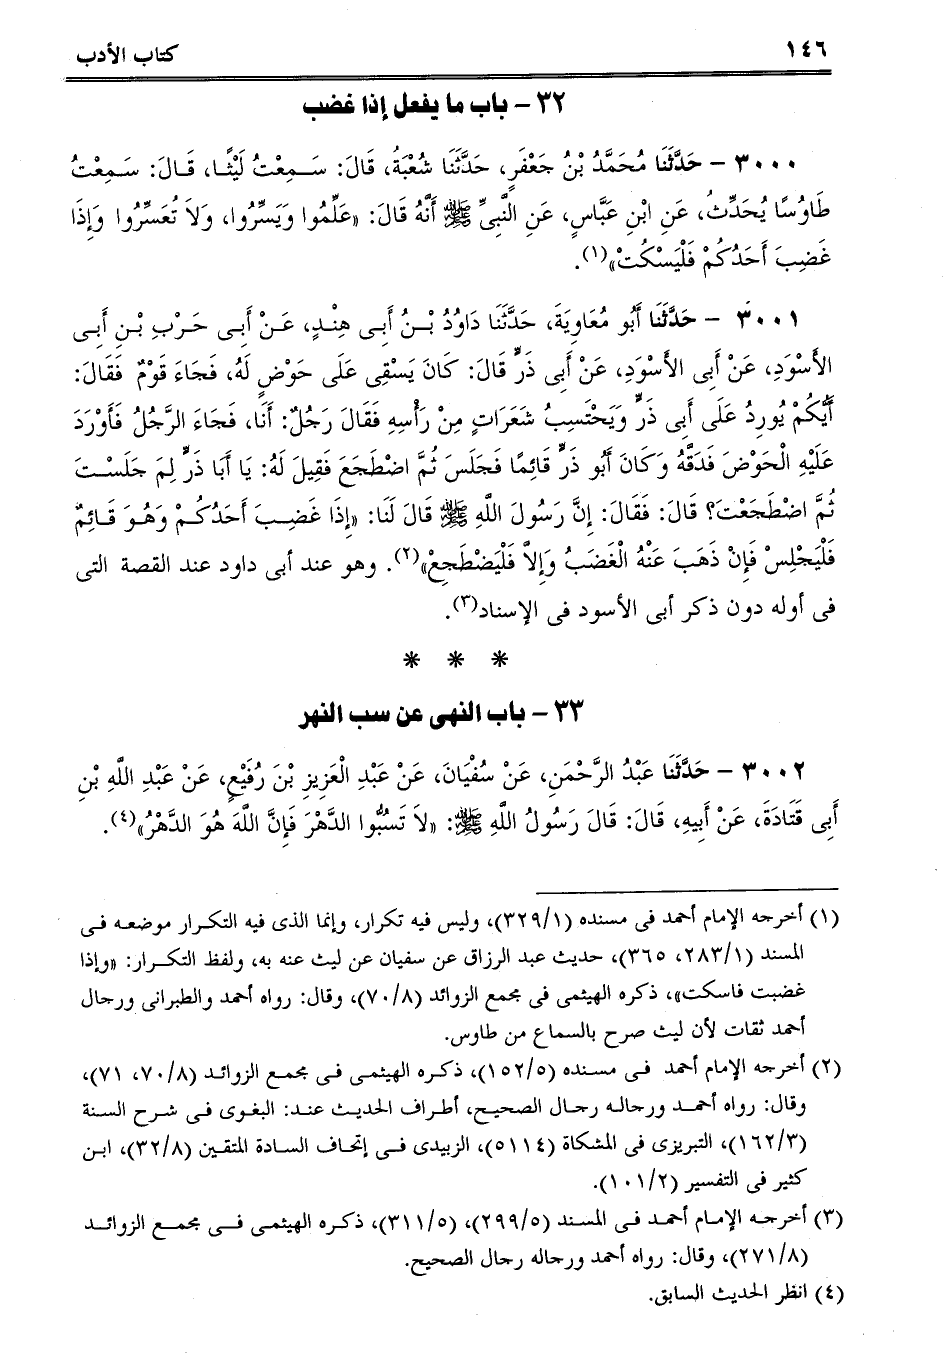 ١٤٦ كتاب الأدب
٣٢ – باب ما يفعل إذا غضب
٣٠٠٠ – حَدَّثَنَا مُحَمَّدُ بْنُ جَعْفَرٍ، حَدَّثَنَا شُعْبَةُ، قَالَ: سَمِعْتُ لَيْثًا، قَالَ: سَمِعْتُ
طَاوُسًا يُحَدِّثُ، عَنِ ابْنِ عَبَّاسٍ، عَنِ النَّبِيِّ ﷺ أَنَّهُ قَالَ: «عَلِّمُوا وَيَسِّرُوا، وَلاَ تُعَسِّرُوا وَإِذَا
غَضِبَ أَحَدُكُمْ فَلْيَسْكُتْ»(١).
٣٠٠١ – حَدَّثَنَا أَبُو مُعَاوِيَةَ، حَدَّثَنَا دَاوُدُ بْنُ أَبِى هِنْدٍ، عَنْ أَبِى حَرْبِ بْنِ أَبِى
الأَسْوَدِ، عَنْ أَبِى الأَسْوَدِ، عَنْ أَبِى ذَرٍّ قَالَ: كَانَ يَسْقِى عَلَى حَوْضٍ لَهُ، فَجَاءَ قَوْمٌ فَقَالَ:
أَيُّكُمْ يُورِدُ عَلَى أَبِى ذَرٍّ وَيَحْتَسِبُ شَعَرَاتٍ مِنْ رَأْسِهِ فَقَالَ رَجُلٌ: أَنَا، فَجَاءَ الرَّجُلُ فَأَوْرَدَ
عَلَيْهِ الْحَوْضَ فَدَقَّهُ وَكَانَ أَبُو ذَرٍّ قَائِمًا فَجَلَسَ ثُمَّ اضْطَجَعَ فَقِيلَ لَهُ: يَا أَبَا ذَرٍّ لِمَ جَلَسْتَ
ثُمَّ اضْطَجَعْتَ؟ قَالَ: فَقَالَ: إِنَّ رَسُولَ اللَّهِ ﷺ قَالَ لَنَا: «إِذَا غَضِبَ أَحَدُكُمْ وَهُوَ قَائِمٌ
فَلْيَجْلِسْ فَإِنْ ذَهَبَ عَنْهُ الْغَضَبُ وَإِلاَّ فَلْيَضْطَجِعْ»(٢). وهو عند أبى داود عند القصة التى
فى أوله دون ذكر أبى الأسود فى الإسناد(٣).
* * *
٣٣ – باب النهى عن سب النهر
٣٠٠٢ – حَدَّثَنَا عَبْدُ الرَّحْمَنِ، عَنْ سُفْيَانَ، عَنْ عَبْدِ الْعَزِيزِ بْنَ رُفَيْعٍ، عَنْ عَبْدِ اللَّهِ بْنِ
أَبِى قَتَادَةَ، عَنْ أَبِيهِ، قَالَ: قَالَ رَسُولُ اللَّهِ ﷺ: «لاَ تَسُبُّوا الدَّهْرَ فَإِنَّ اللَّهَ هُوَ الدَّهْرُ»(٤).
(١) أخرجه الإمام أحمد فى مسنده (٣٢٩/١)، وليس فيه تكرار، وإنما الذى فيه التكرار موضعه فى
المسند (٢٨٣/١، ٣٦٥)، حديث عبد الرزاق عن سفيان عن ليث عنه به، ولفظ التكرار: «وإذا
غضبت فاسكت»، ذكره الهيثمى فى مجمع الزوائد (٧٠/٨)، وقال: رواه أحمد والطبرانى ورجال
أحمد ثقات لأن ليث صرح بالسماع من طاوس.
(٢) أخرجه الإمام أحمد فى مسنده (١٥٢/٥)، ذكره الهيثمى فى مجمع الزوائد (٧٠/٨، ٧١)،
وقال: رواه أحمد ورجاله رجال الصحيح، أطراف الحديث عند: البغوى فى شرح السنة
(١٦٢/٣)، التبريزى فى المشكاة (٥١١٤)، الزبيدى فى إتحاف السادة المتقين (٣٢/٨)، ابن
كثير فى التفسير (١٠١/٢).
(٣) أخرجه الإمام أحمد فى المسند (٢٩٩/٥)، (٣١١/٥)، ذكره الهيثمى فى مجمع الزوائد
(٢٧١/٨)، وقال: رواه أحمد ورجاله رجال الصحيح.
(٤) انظر الحديث السابق.